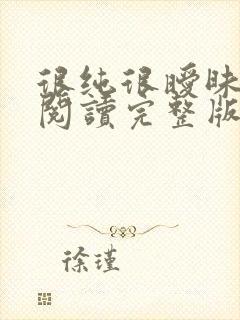 很純很曖昧
閱讀完整版
徐瑾